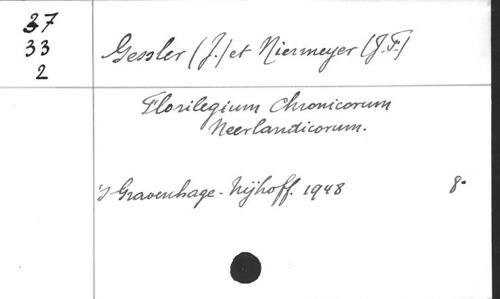 37
33
2
Gessler (J.) et Niermeyer (J.F.)
Florilegium Chronicorum
Neerlandicorum.
's Gravenhage - Nijhoff. 1948 8°